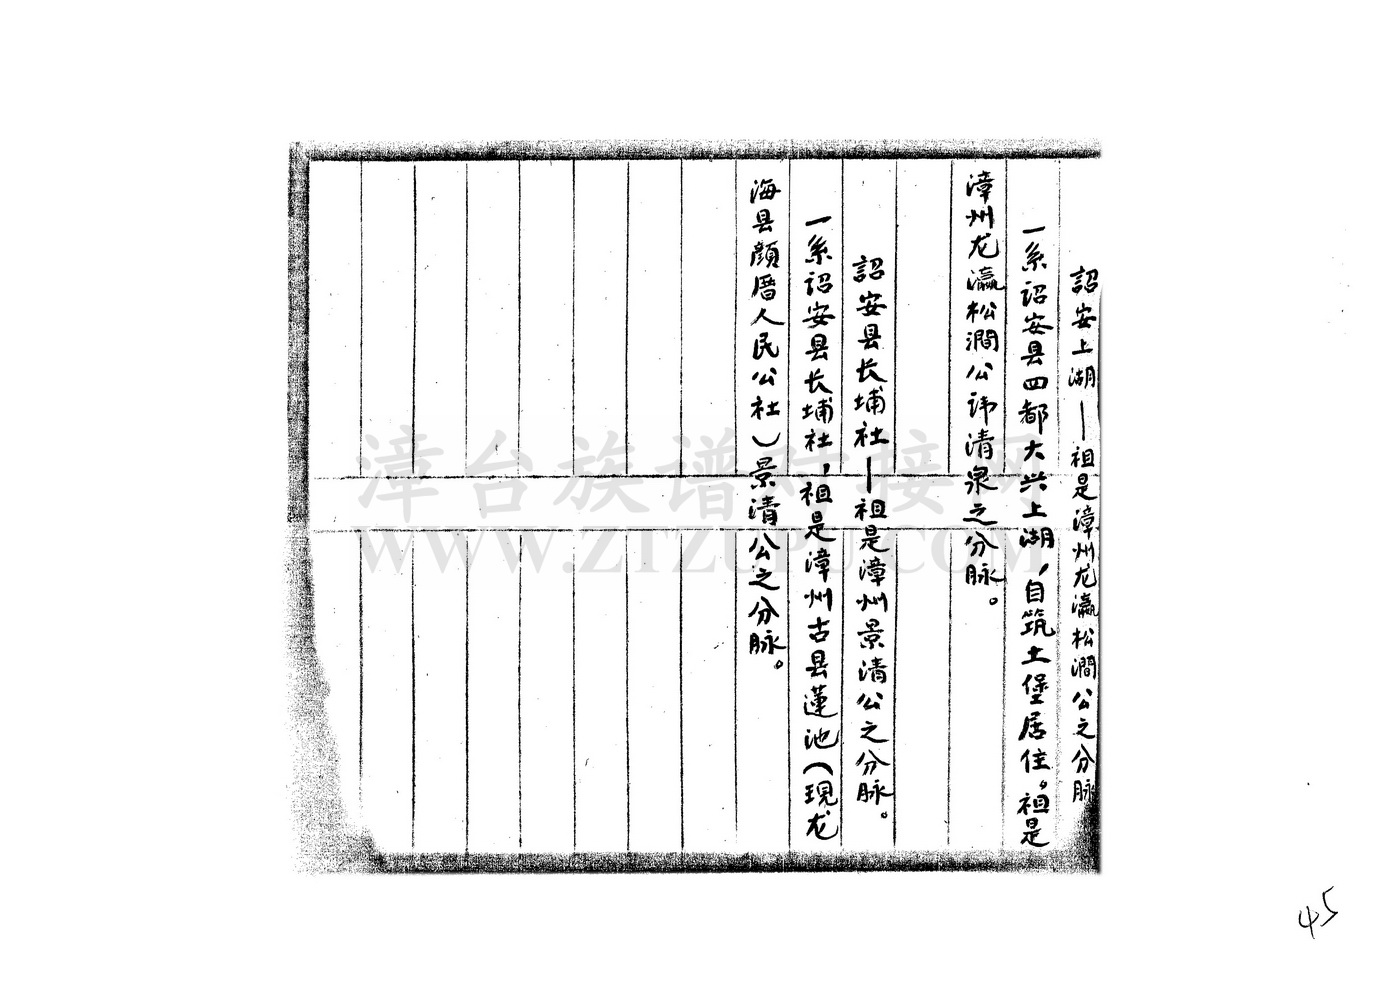 詔安上湖——祖是漳州龙瀛松澗公之分脉
一系詔安县四都大兴上湖，自筑土堡居住。祖是
漳州龙瀛松澗公讳清泉之分脉。
詔安县长埔社—祖是漳州景清公之分脉。
一系詔安县长埔社，祖是漳州古县蓮池（現龙
海县顏厝人民公社）景清公之分脉。
漳台族谱对接网
WWW.ZTZUPU.COM
45